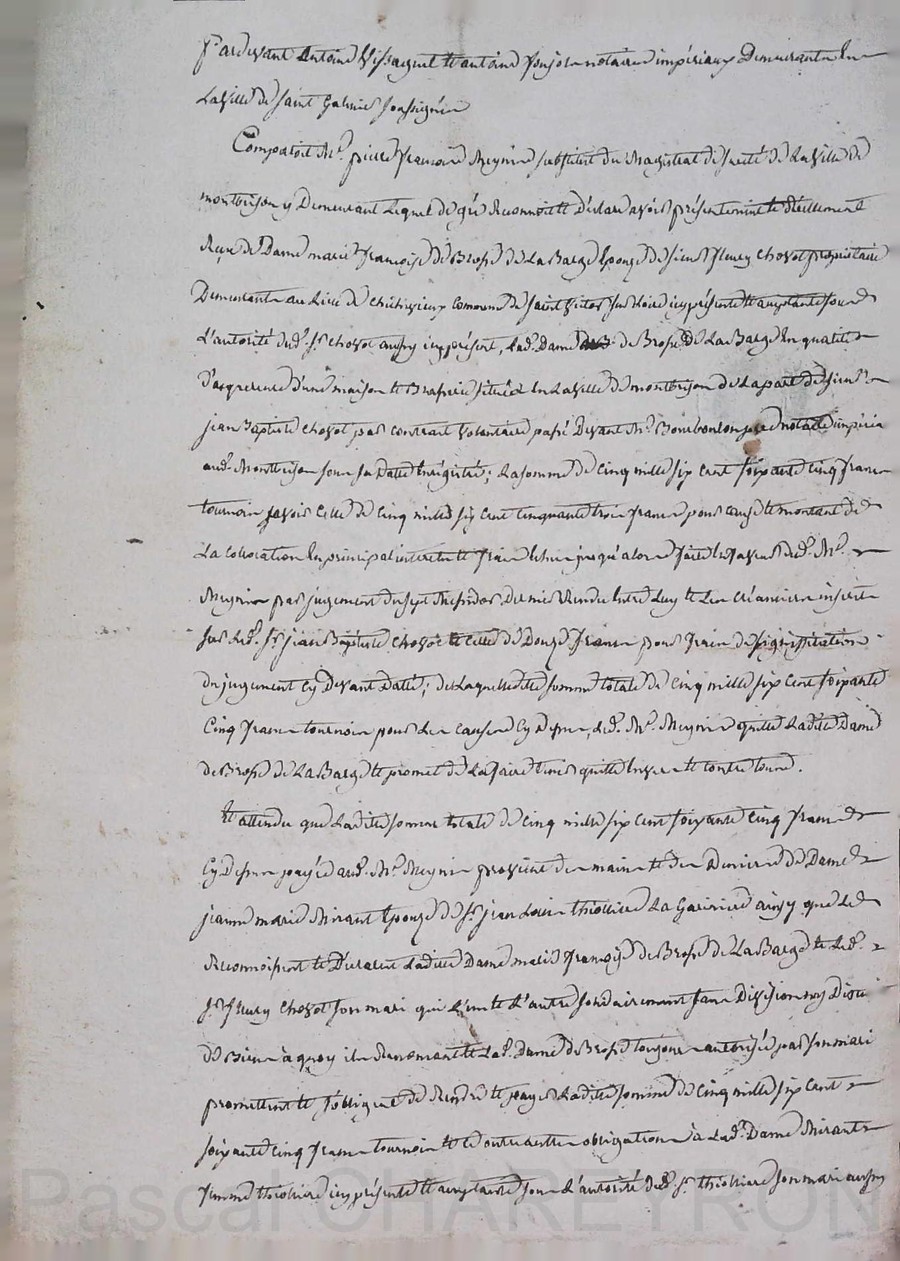 Pardevant Antoine Vissaguet et antoine notaires impériaux Demeurants En
La Ville de Saint Galmier soussignés
Comparoit Mr. pierre françois Meynis substitut du Magistrat de sureté de La Ville de
montbrison y Demeurant Lequel de gré Reconnoit et Déclare avoir présentement et réellement
Reçu de Dame marie françoise de Brosse de La Barge Epouze de sieur fleury Chovot propriétaire
Demeurante au Lieu de commune de Saint Victor sur Loire icy présente et acceptante sous
L'autorité dud. Sr. Chovot aussy icy présent, Lad. Dame de Brosse De La Barge En qualité
D'acquereuse D'une maison et située En La Ville de montbrison de La part de Sieur
jean Baptiste Chovot par contrat volontaire passé Devant Mr. Bourboulon notaire impérial
aud. Montbrison sous sa Datte Enrégistré; La somme de Cinq mille six Cent soixante Cinq francs
tournois savoir Celle de Cinq mille six Cent Cinquante trois francs pour montant de
La Collocation En principal interets et frais jusqu'alors faite En faveur dud. Mr.
Meynis par jugement du sept Messidor Dernier Rendu Entre Luy et Les Créanciers inscrits
sur Led. Sr. jean Baptiste Chovot et Celle de Douze francs pour frais de signiffication
du jugement Cy Devant Datté; de Laquelle dite somme totale de Cinq mille six Cent soixante
Cinq francs tournois pour Les Causes Cy Dessus, Led. Mr. Meynis quitte Ladite Dame
de Brosse de La Barge et promet de La faire tenir quitte Envers et Contre tous.
Et attendu que Ladite somme totale de Cinq mille six Cent soixante Cinq francs
Cy Dessus payée aud. Mr. Meynis provient des mains et des Deniers de Dame
jeanne marie Mirant Epouze de Sr. jean Louis thiolliere La ainsy que Le
Reconnoissent et Déclarent Ladite Dame marie françoise de Brosse de La Barge et Led.
Sr. fleury Chovot son mari qui L'un et L'autre solidairement sans Division ny Discu
de Biens à quoy ils Renoncent et La d. Dame de Brosse toujours autorisée par son mari
promettent et s'obligent de Rendre et payer Ladite somme de Cinq mille six Cent
soixante Cinq francs tournois et ce outre autre obligation à Lad. Dame Mirant
femme thiolliere icy présente et acceptante sous L'autorité dud. Sr. thiolliere son mari aussy
Pascal CHAREYRON